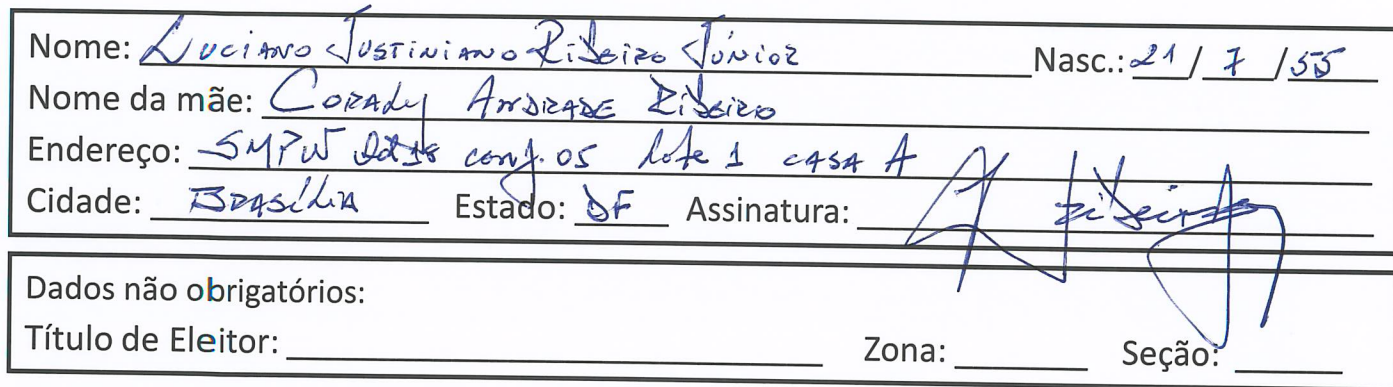 Nome: Luciano Justiniano Ribeiro Júnior Nasc.: 21 / 7 /55
Nome da mãe: Corady Andrade Ribeiro
Endereço: SMPW Qd 18 conj. 05 lote 1 casa A
Cidade: Brasília Estado: DF Assinatura: Ribeiro
Dados não obrigatórios:
Título de Eleitor: Zona: Seção: